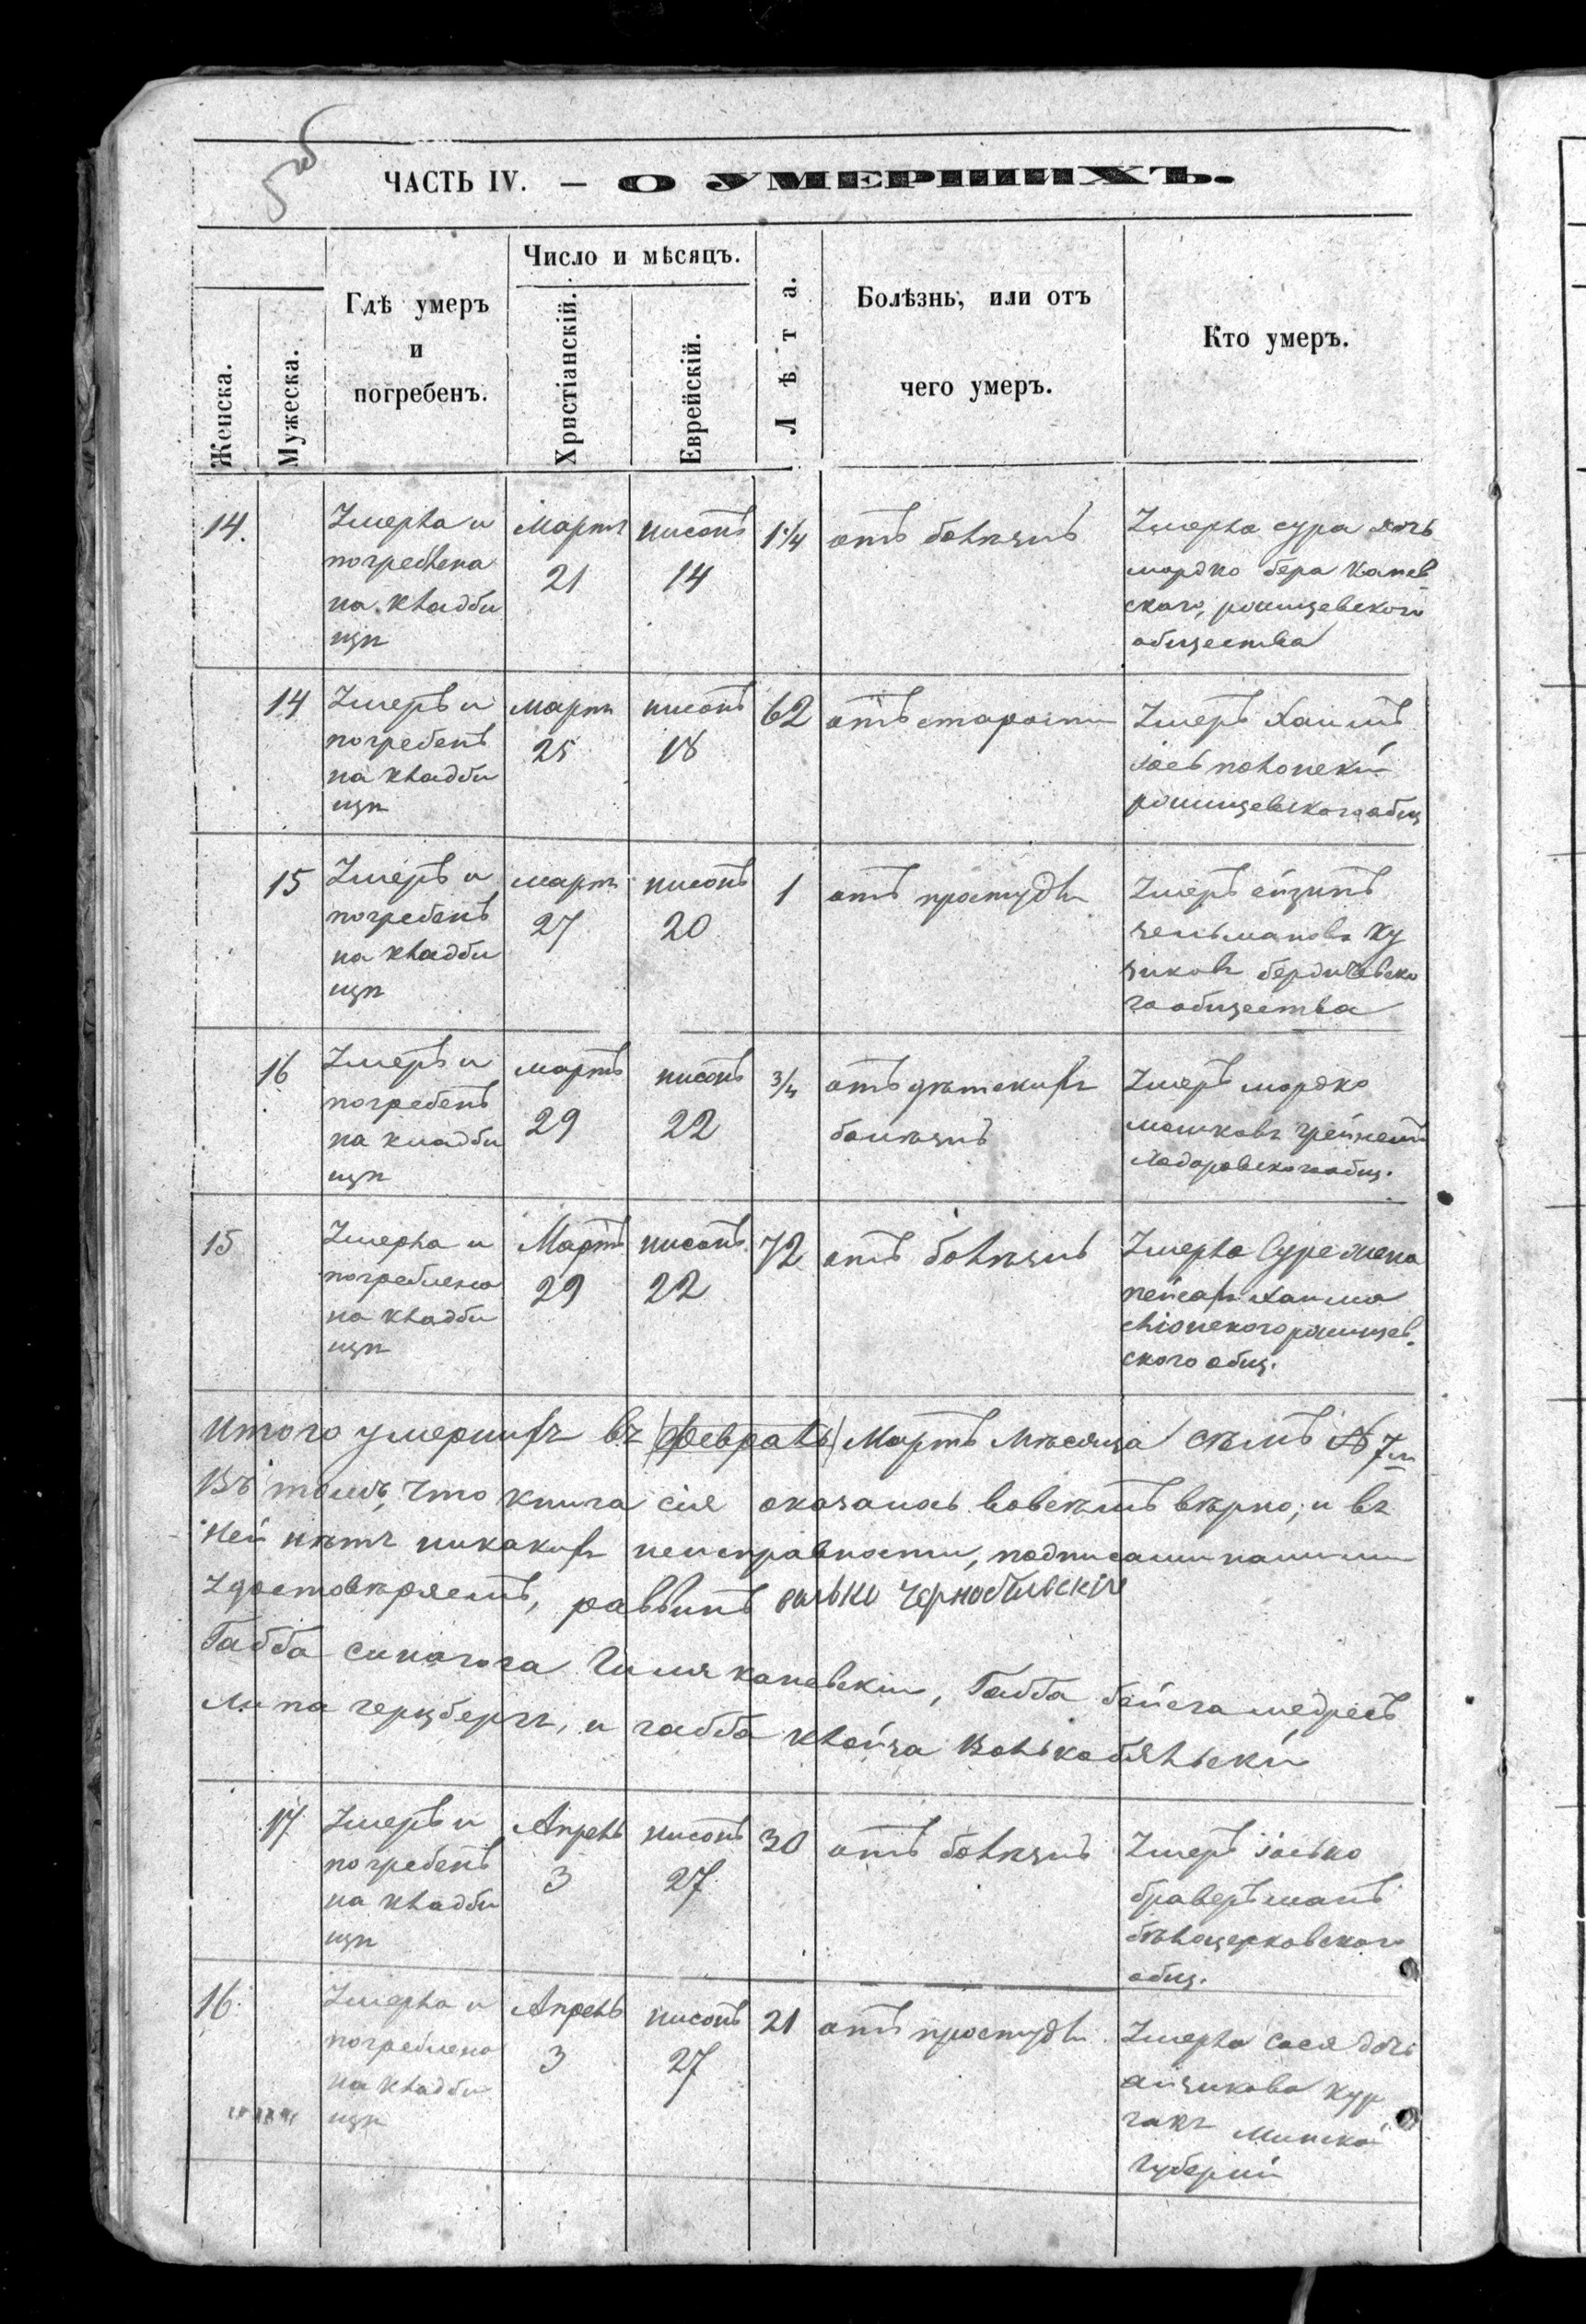 ЧАСТЬ IV. — О УМЕРШИХЪ.
Женска.
Мужеска.
Гдѣ умеръ
и
погребенъ.
Число и мѣсяцъ.
Христіанскій.
Еврейскій.
Лѣта.
Болѣзнь, или отъ
чего умеръ.
Кто умеръ.
14.
Умерла и
погребена
на кладби
щѣ
Мартъ
21
нисонъ
14
1 1/4
отъ болѣзнѣ
Умерла сура дочь
мордко бера канев
скаго,
общества
14
Умеръ и
погребенъ
на кладби
щѣ
мартъ
25
нисонъ
18
62
отъ старости
Умеръ Хаимъ
15
Умеръ и
погребенъ
на кладби
щѣ
мартъ
27
нисонъ
20
1
отъ простуды
Умеръ
зельмановъ
бердичевско
го общества
16
Умеръ и
погребенъ
на кладби
щѣ
мартъ
29
нисонъ
22
3/4
отъ дѣтскихъ
болѣзнѣ
Умеръ мордко
мошковъ
Ходоровского общ.
15
Умерла и
погребено
на кладби
щѣ
Мартъ
29
нисонъ
22
72
отъ болѣзнѣ
Умерла Суре жена
пейсахъ Хаима
ского общ.
Итого умершихъ въ (февралѣ) Мартъ Мѣсяца сѣмъ № 7м
Въ томъ, что книга сія оказалась вовсѣмъ вѣрно; и въ
ней нѣтъ никакихъ неисправности, подписами нашими
удостовѣряемъ, раввинъ волько чернобильскій
Габба синагога каневскій, Габба бейсга медресъ
Липа герцбергъ, и габба клойза
17
Умеръ и
погребенъ
на кладби
щѣ
Апрель
3
нисонъ
27
30
отъ болѣзнѣ
Умеръ іосько
браверъманъ
бѣлоцерковского
общ.
16.
Умерла и
погребено
на кладби
щѣ
Апрель
3
нисонъ
27
21
отъ простуды
Умерла сося дочь
айзикова кур
Минской
Губерній